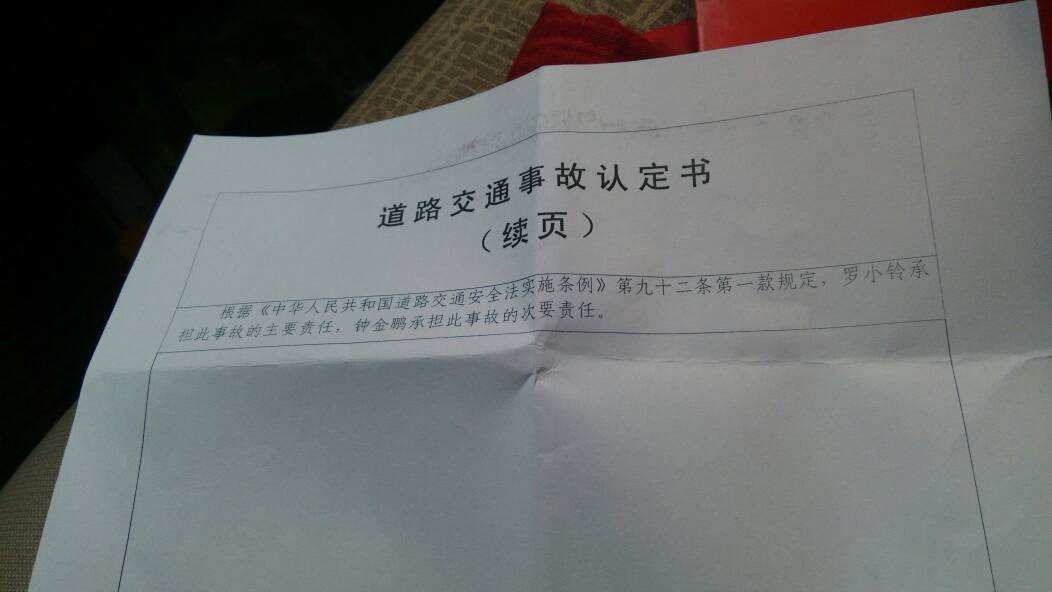 道路交通事故认定书
（续页）
根据《中华人民共和国道路交通安全法实施条例》第九十二条第一款规定，罗小铃承
担此事故的主要责任，钟金鹏承担此事故的次要责任。